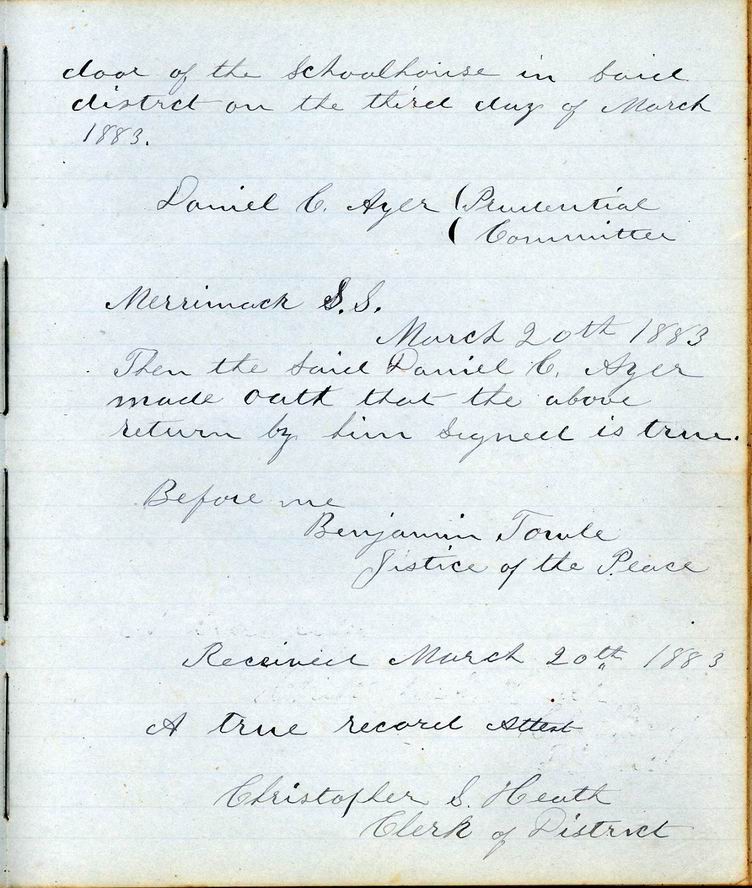 door of the Schoolhouse in Said
distrct on the third day of March
1883.
Daniel C. Ayer ( Prudential
( Committee
Merrimack S.S.
March 20th 1883
Then the Said Daniel C. Ayer
made oath that the above
return by him Signed is true.
Before me
Benjamin Towle
Jistice of the Peace
Received March 20th 1883
A true record Attest
Christopher S. Heath
Clerk of District